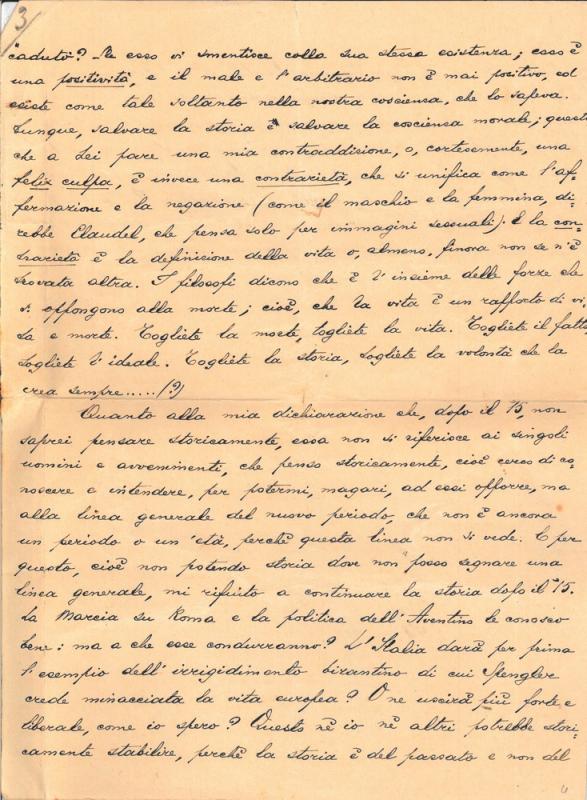 3
"caduto? Se esso vi smentisce colla sua stessa esistenza; esso è
una positività, e il male e l'arbitrario non è mai positivo, ed
esiste come tale soltanto nella nostra coscienza, che lo sapeva.
Dunque, salvare la storia è salvare la coscienza morale; questo
che a Lei pare una mia contraddizione, o, cortesemente, una
felix culpa, è invece una contrarietà, che si unifica come l'af-
fermazione e la negazione (come il maschio e la femmina, di-
rebbe Claudel, che pensa solo per immagini sessuali). E la con-
trarietà è la definizione della vita o, almeno, finora non se n'è
trovata altra. I filosofi dicono che è l'insieme delle forze che
si oppongono alla morte; cioè, che la vita è un rapporto di vi-
ta e morte. Togliete la morte, togliete la vita. Togliete il fatto,
togliete l'ideale. Togliete la storia, togliete la volontà che la
crea sempre.....(?)
Quanto alla mia dichiarazione che, dopo il 15, non
saprei pensare storicamente, essa non si riferisce ai singoli
uomini e avvenimenti, che penso storicamente, cioè cerco di co-
noscere e intendere, per potermi, magari, ad essi opporre, ma
alla linea generale del nuovo periodo, che non è ancora
un periodo o un'età, perchè questa linea non si vede. E per
questo, cioè non potendo storia dove non posso segnare una
linea generale, mi rifiuto a continuare la storia dopo il '15.
La Marcia su Roma e la politica dell'Aventino le conosco
bene: ma a che esse condurranno? L'Italia darà per prima
l'esempio dell'irrigidimento bizantino di cui Spengler
crede minacciata la vita europea? O ne uscirà più forte e
liberale, come io spero? Questo nè io nè altri potrebbe stori-
camente stabilire, perchè la storia è del passato e non del
4